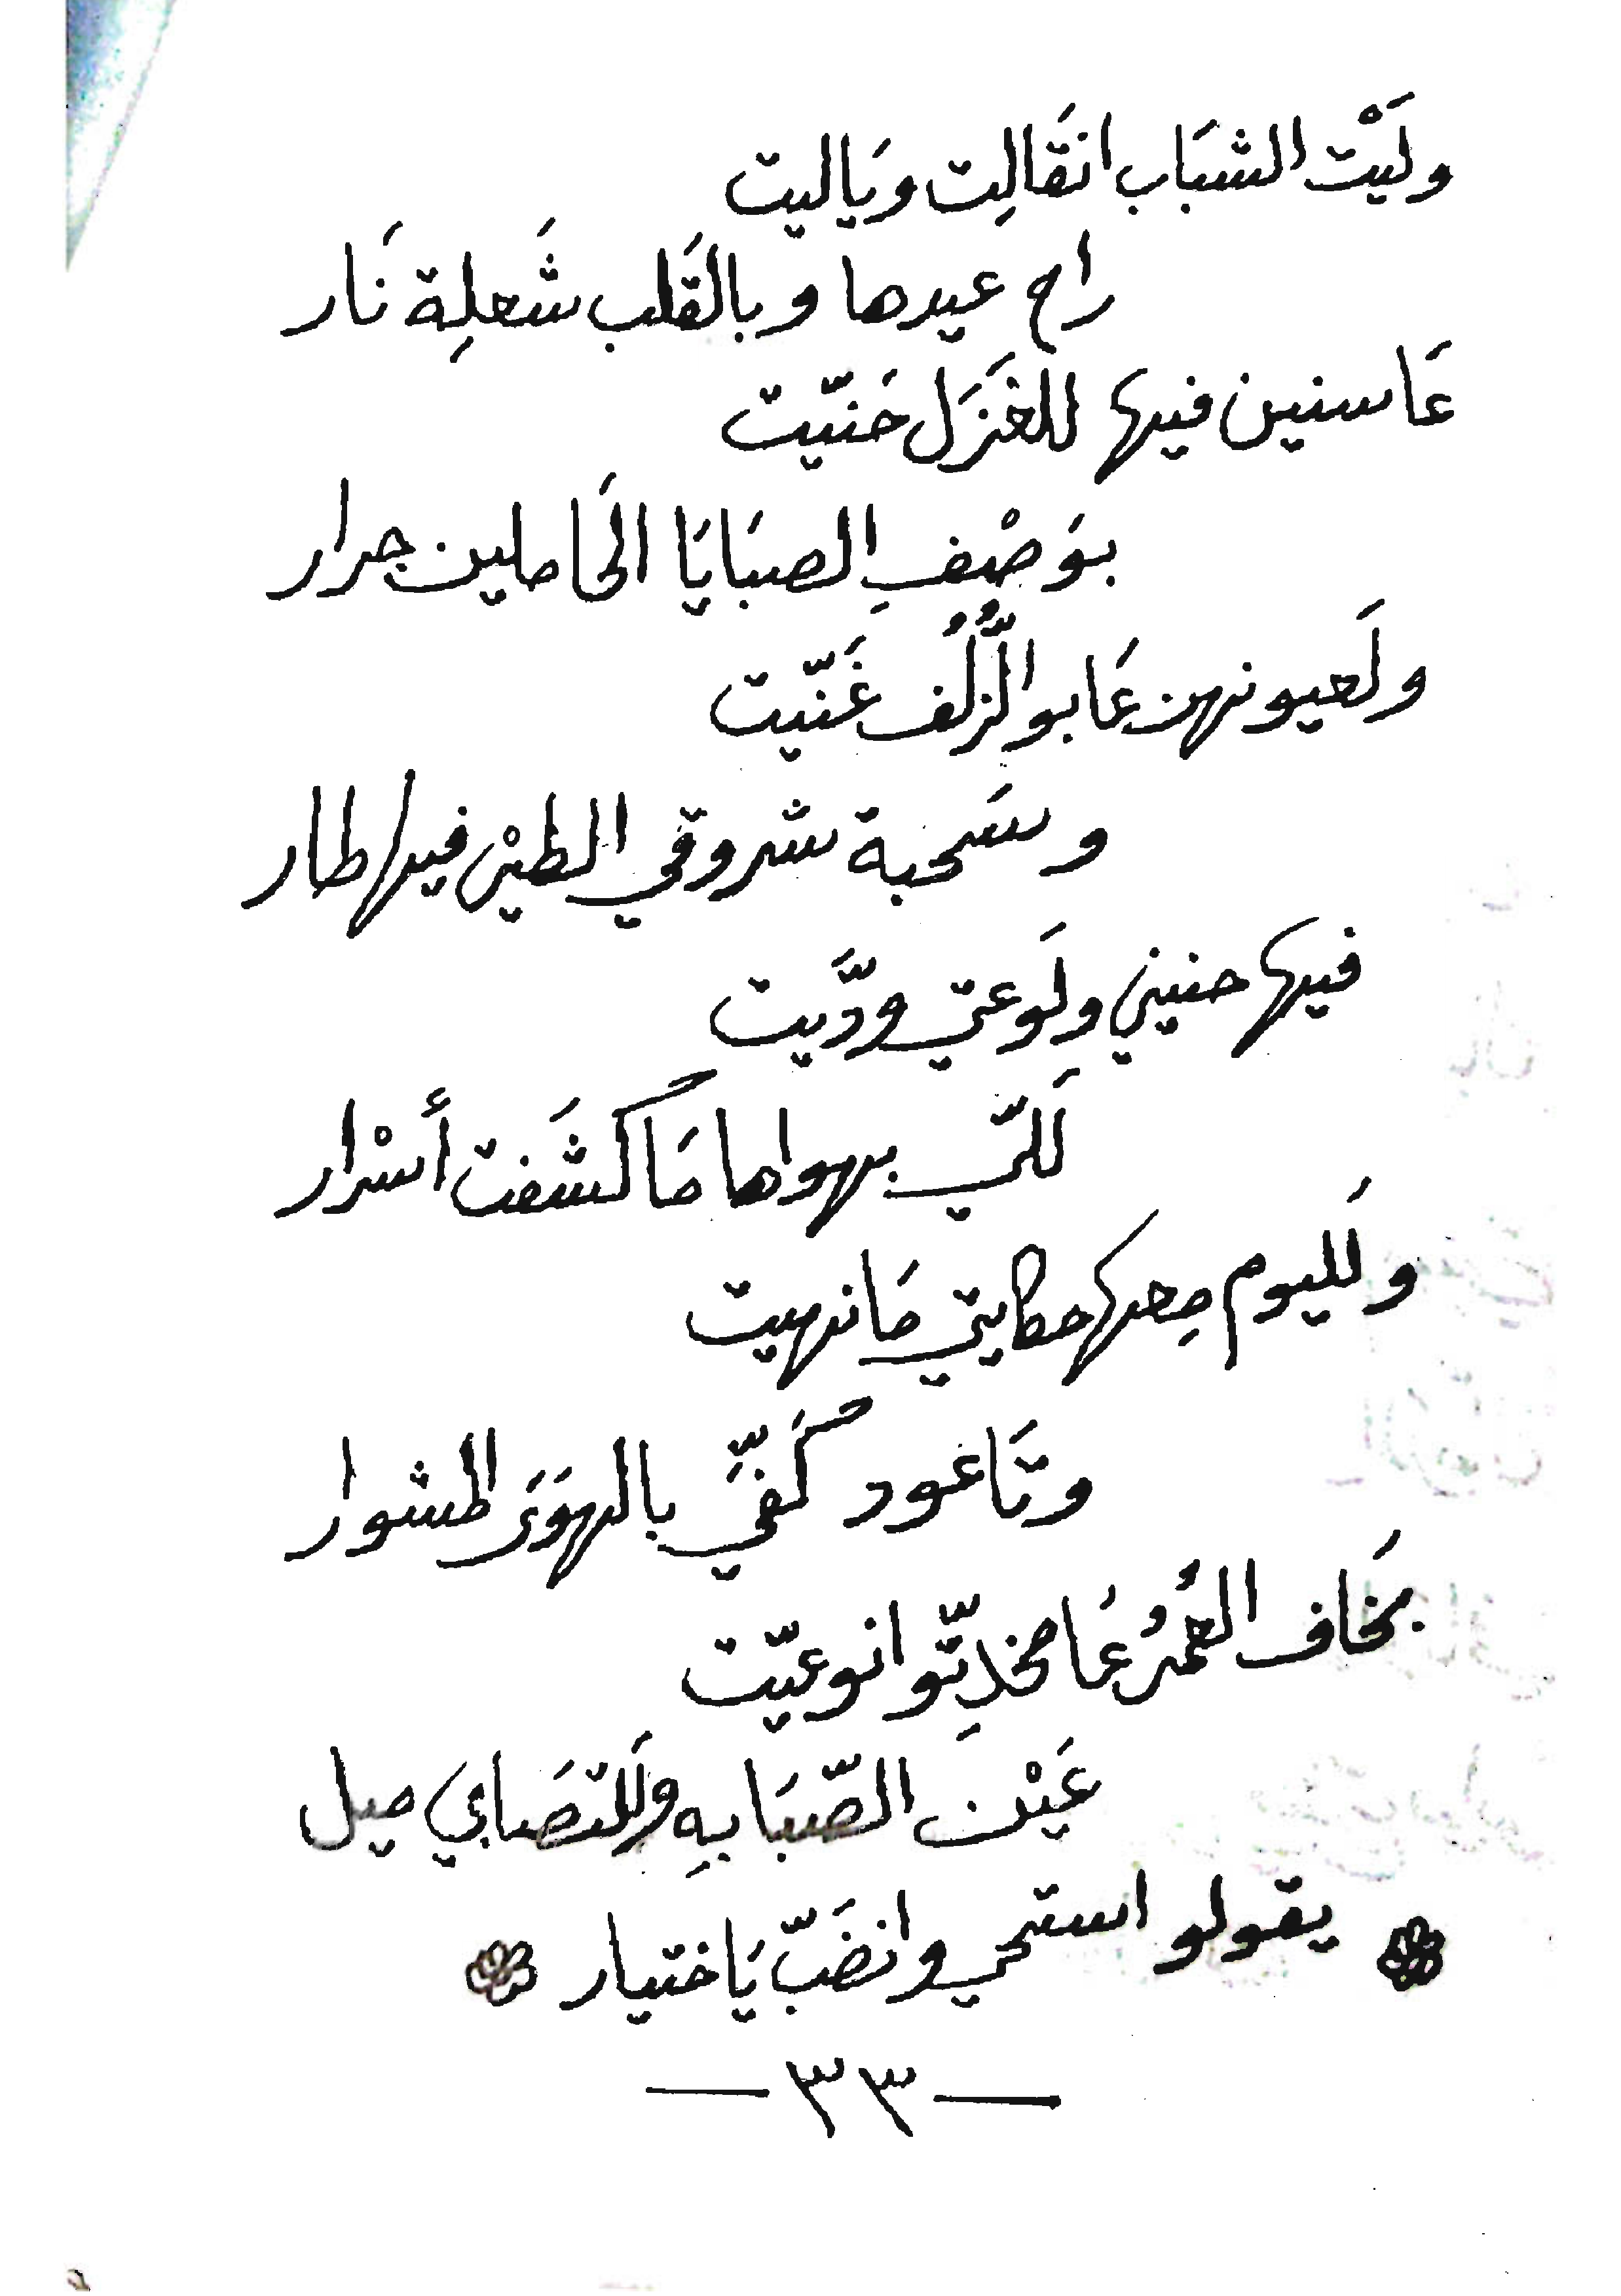 ولَيْت الشبَاب انقَالِت ويَاليت
راح عيدها وبالقَلب شَعلِة نَار
عَا سنين فيها للغَزَل حَنّيت
بوَصْفِ الصبَايَا الحَاملين جرار
ولَعيونهن عَا بو الزُّلُف غَنّيت
وسَحبة شروقي الطيْر فيها طار
فيها حنيني ولَوعتي ودَّيت
لَلّي بهواها مَا كَشَفت أسْرار
ولَليوم مِعها حكايتي مَا نهيت
وتَا عود كَفّي بالهَوَى المشوار
بخَاف العُمُر عَا مخدِتّو انوعيّت
عَيْن الصّبَابيِه ولَلتصَابي ميل
يقولو استحي وانضَبّ يَا ختيار
— ٣٣ —